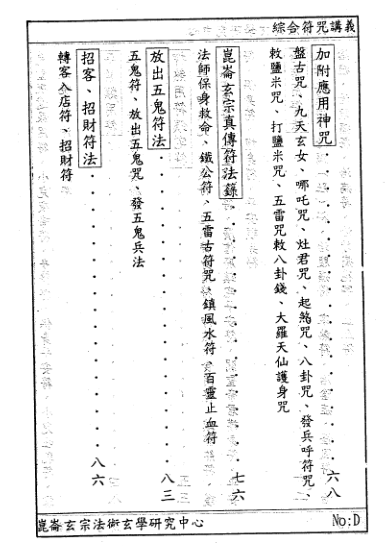 綜合符咒講義
加附應用神咒．．．．．．．．．．六八
盤古咒、九天玄女、哪吒咒、灶君咒、起煞咒、八卦咒、發兵呼符咒、
敕鹽米咒、打鹽米咒、五雷咒敕八卦錢、大羅天仙護身咒
崑崙玄宗真傳符法錄．．．．．．．．七六
法師保身救命、鐵公符、五雷古符咒、鎮風水符、百靈止血符
放出五鬼符法．．．．．．．．．．．八三
五鬼符、放出五鬼咒、發五鬼兵法
招客、招財符法．．．．．．．．．．八六
轉客入店符、招財符
崑崙玄宗法術玄學研究中心
No:D